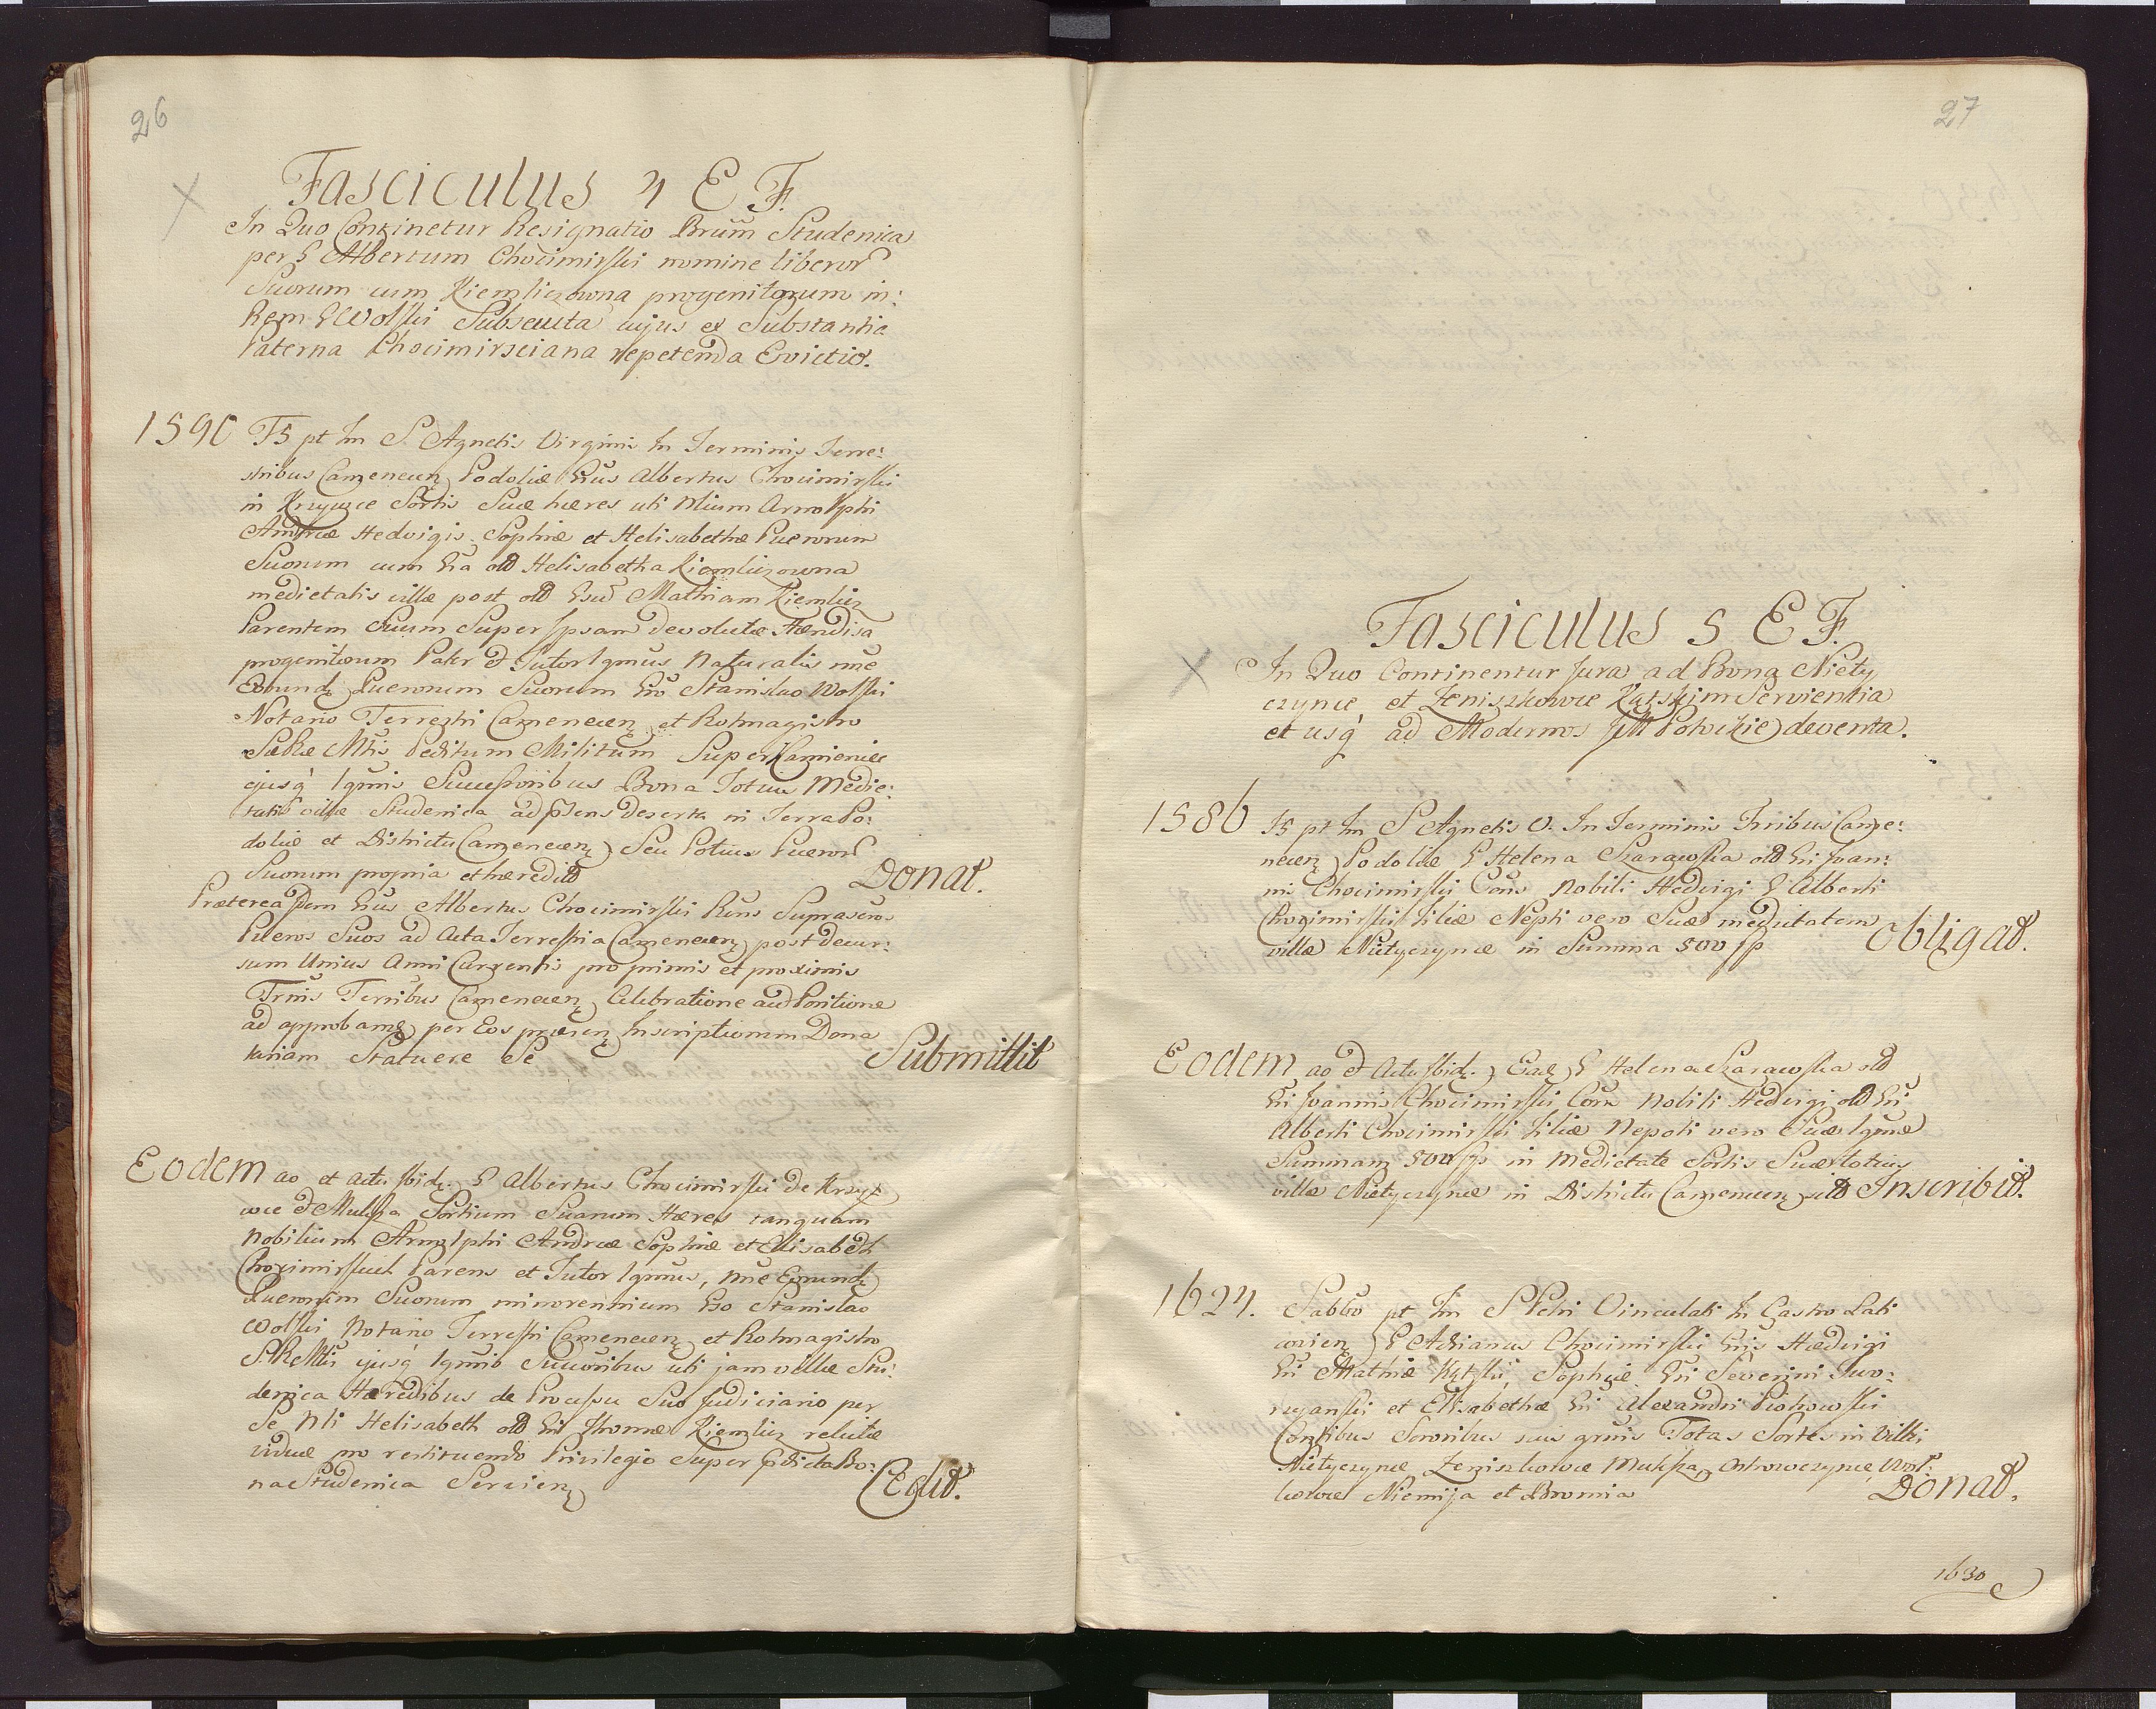 26
Fasciculus 4 E F.
In Quo Continetur Resignatio Brum Studenica
per G Albertum Chocimirski nomine liberor
Suorum cum Kiemliczowna progenitorum in:
Rem G Wolski Subsecuta cujus ex Substantia
Paterna Chocimirsciana repetenda Evictio.
1590 F5 pt In S. Agnetis Virginis In Terminis Terre:
stribus Camenecen Podoliæ Gsus Albertus Chocimirski
in Krzywcze Sortis Suæ hæres uti Nlium Arnolphi
Andreæ Hedvigis Sophiæ et Helisabethæ Puerorum
Suorum cum Gsa old Helisabetha Kiemliczowna
medietatis villæ post old Gsum Mathiam Kiemlicz
Parentem Suum Super Ipsam devolutæ
progenitorum Pater et Tutor Igmus Naturalis nne
Eorund Puerorum Suorum Gso Stanislao Wolski
Notario Terrestri Camenecen et Rotmagistro
SæRæ Mtis Peditum Militum Super Kamieniec
ejusq Igmis Successoribus Bona Totius Medie:
tatis villæ Studenica ad psens deserta in Terra Po:
doliæ et Districtu Camenecen Seu Potius Pueror
Suorum propria et hæredit Donat.
Præterea Idem Gsus Albertus Chocimirski Suprascros
Pueros Suos ad Acta Terrestria Camenecen post decur:
sum Unius Anni Currentis pro primis et proximis
Trnis Terribus Camenecen Celebratione
ad approband per Eos præsen Inscriptionem Dona
toriam Statuere Se Submittit
Eodem ao et actu Ibid. G Albertus Chocimirski de Krzyf
wce et Muksza Sortium Suarum Hæres tanquam
Nobilium Arnolphi Andreæ Sophiæ et Elisabeth
Chocimirskich Parens et Tutor Igmus, nne Eorund
Puerorum Suorum minorennium Gso Stanislao
Wolski Notario Terrestri Camenecen et Rotmagistro
S.R.Mtis ejusq Igmis Succoribus uti jam villæ Stu:
denica Hæredibus de Processu Suo Judiciario per
Se Nli Helisabeth old Gsi Thomæ Kiemlicz relictæ
viduæ pro restituendo Privilegio Super pdicta Bo:
na Studenica Servien Cedit.
27
Fasciculus 5 E F.
In Quo Continentur Jura ad Bona Niety
czynce et Zeniszkowce Kątskim Servientia
et usq ad Modernos JM Potockie deventa.
1586 F5 pt In S Agnetis V. In Terminis Trribus Came:
necen Podoliæ G Helena Skarzewska old Gsi Joan:
nis Chocimirski Cons Nobili Hedvigi G Alberti
Chocimirski filiæ Nepti vero Suæ medietatem
villæ Nietyczynce in Summa 500 fp Obligat.
Eodem ao et Actu Ibid. Ead G Helena Skarzewska old
Gsi Joannis Chocimirski Conx Nobili Hedvigi old Gsi
Alberti Chocimirski filiæ Nepoti vero Suæ Igmæ
Summam 500 fp in Medietate Sortis Suæ totius
villæ Nietyczynce in Districtu Camenecen sit Inscribit.
1624. Sabbo pt In S Petri Vinculati In Castro Lati
covien G Adrianus Chocimirski Gsis Hædvigi
Gsi Mathiæ Kątski, Sophiæ Gsi Severini Suo:
Elisabethæ Gsi Alexandri Piotrowski
Contibus Sororibus suis grmis Totas Sortes in Villis
Nietyczynce Zeniszkowce Muksza Ostrowczynce Woł:
kowce Niemija et Bromia Donat.
1630